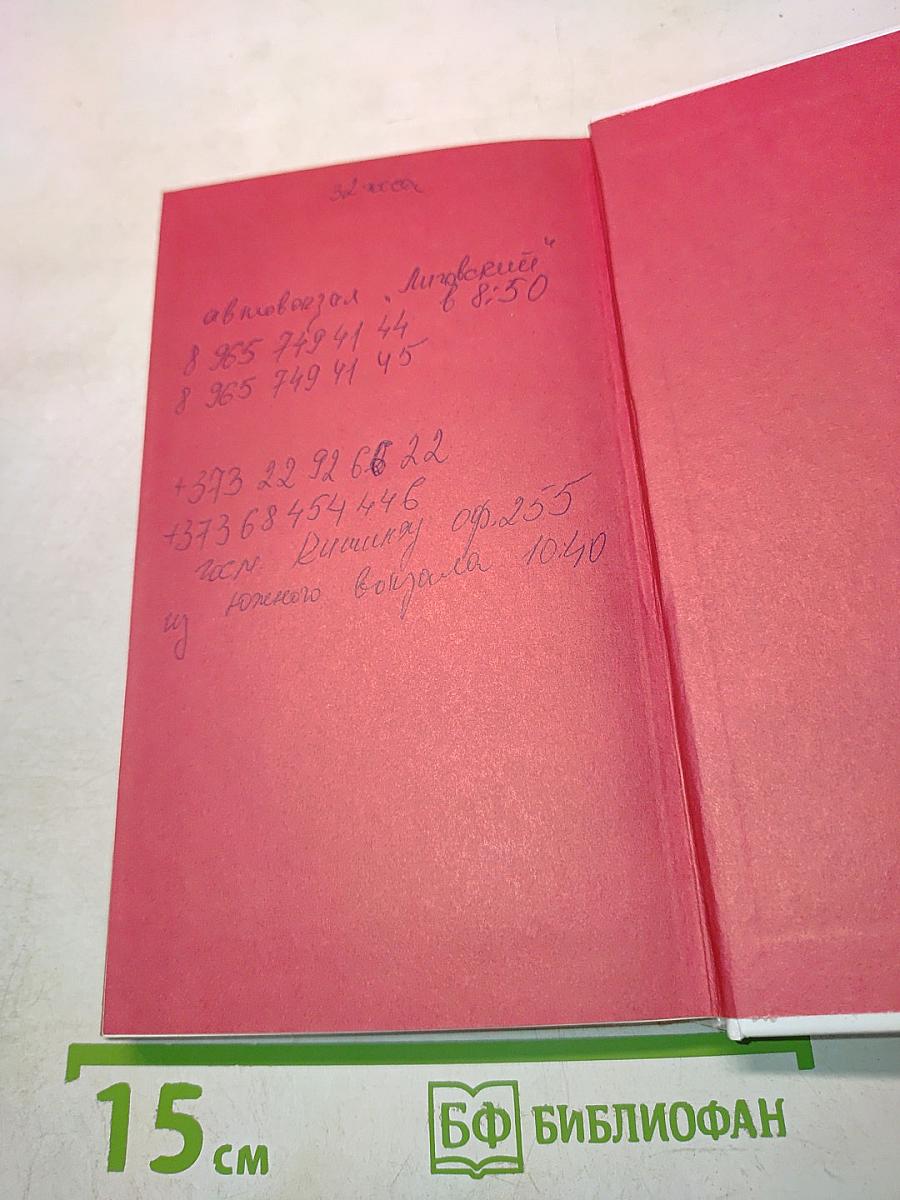 32 часа
автовокзал „Лиговский"
в 8:50
8 965 749 41 44
8 965 749 41 45
+373 22 92 66 22
+373 68 454 446
гост. Кишинэу оф. 255
из южного вокзала 10:40
15 см
БФ БИБЛИОФАН